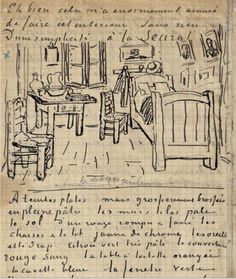 Eh bien cela m'a énormément amusé
de faire cet intérieur sans rien
D'une simplicité à la Seurat
A teintes plates mais grossièrement brossées
en pleine pâte les murs lilas pâle
le sol d'un rouge rompu & fané
chaises & le lit jaune de chrome les oreillers
et le drap citron vert très pâle la couverture
rouge sang la table à toilette orangée
la cuvette bleue la fenêtre verte